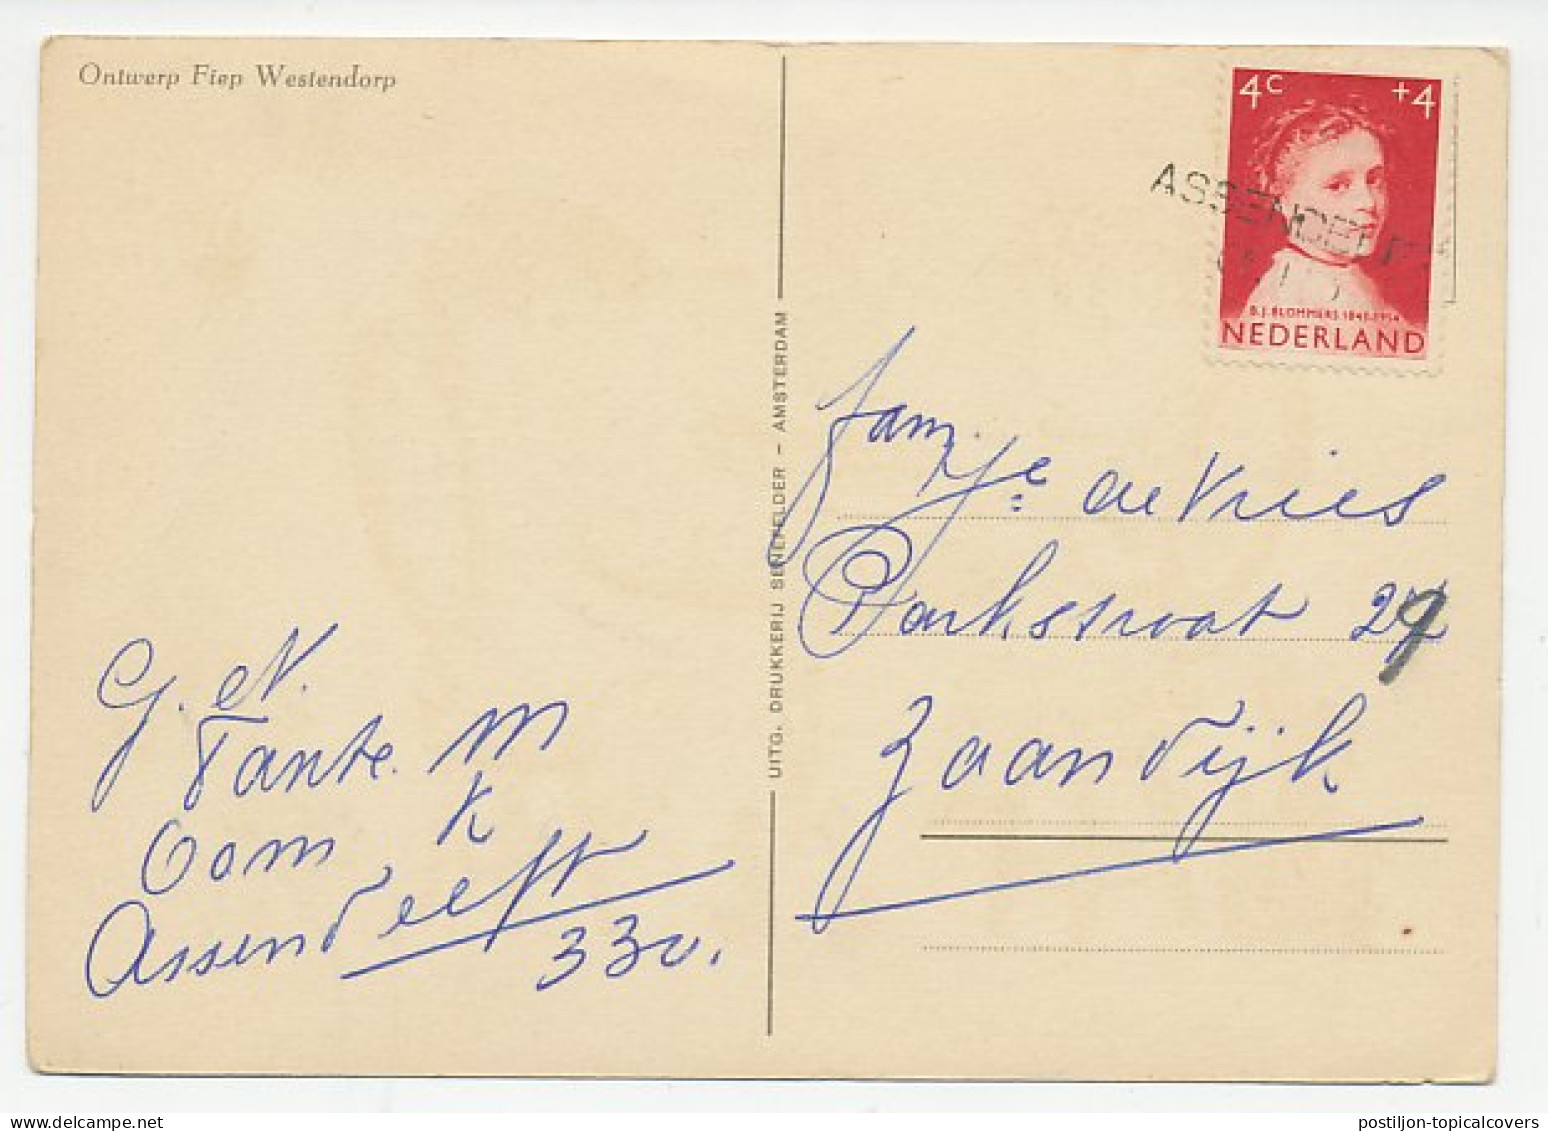 Ontwerp Fiep Westendorp
4c +4
ASSENDELFT
B.J. BLOMMERS 1845-1914
NEDERLAND
UITG. DRUKKERIJ SENEFELDER – AMSTERDAM
fam. de Vries
Parkstraat 29
Zaandijk
G. et N.
Tante. M
Oom K
Assendelft
330.
delcampe.net
postiljon-topicalcovers